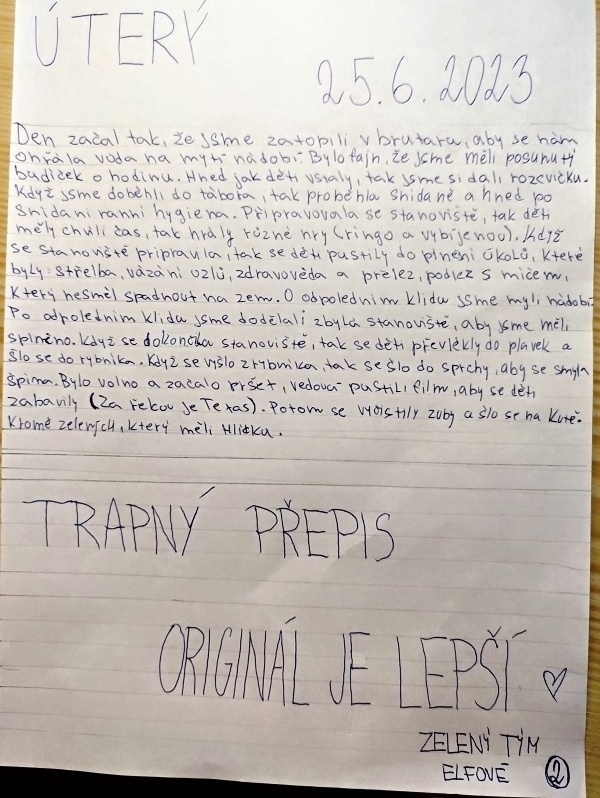 ÚTERÝ
25.6.2023
Den začal tak, že jsme zatopili v brutaru, aby se nám
ohřála voda na mytí nádobí. Bylo fajn, že jsme měli posunutý
budíček o hodinu. Hned jak děti vstaly, tak jsme si dali rozcvičku.
Když jsme doběhli do tábora, tak proběhla snídaně a hned po
snídani ranní hygiena. Připravovala se stanoviště, tak děti
měly chvíli čas, tak hrály různé hry (ringo a vybíjenou). Když
se stanoviště připravila, tak se děti pustily do plnění úkolů, které
byly: střelba, vázání uzlů, zdravověda a přelez, podlez s míčem,
který nesměl spadnout na zem. O odpoledním klidu jsme myli nádobí.
Po odpoledním klidu jsme dodělali zbylá stanoviště, aby jsme měli
splněno. Když se dokončila stanoviště, tak se děti převlékly do plavek a
šlo se do rybníka. Když se vyšlo z rybníka, tak se šlo do sprchy, aby se smyla
špína. Bylo volno a začalo pršet, vedoucí pustili film, aby se děti
zabavily (Za řekou je Texas). Potom se vyčistily zuby a šlo se na kutě.
Kromě zelených, který měli hlídku.
TRAPNÝ PŘEPIS
ORIGINÁL JE LEPŠÍ ♡
ZELENÝ TÝM
ELFOVÉ
2